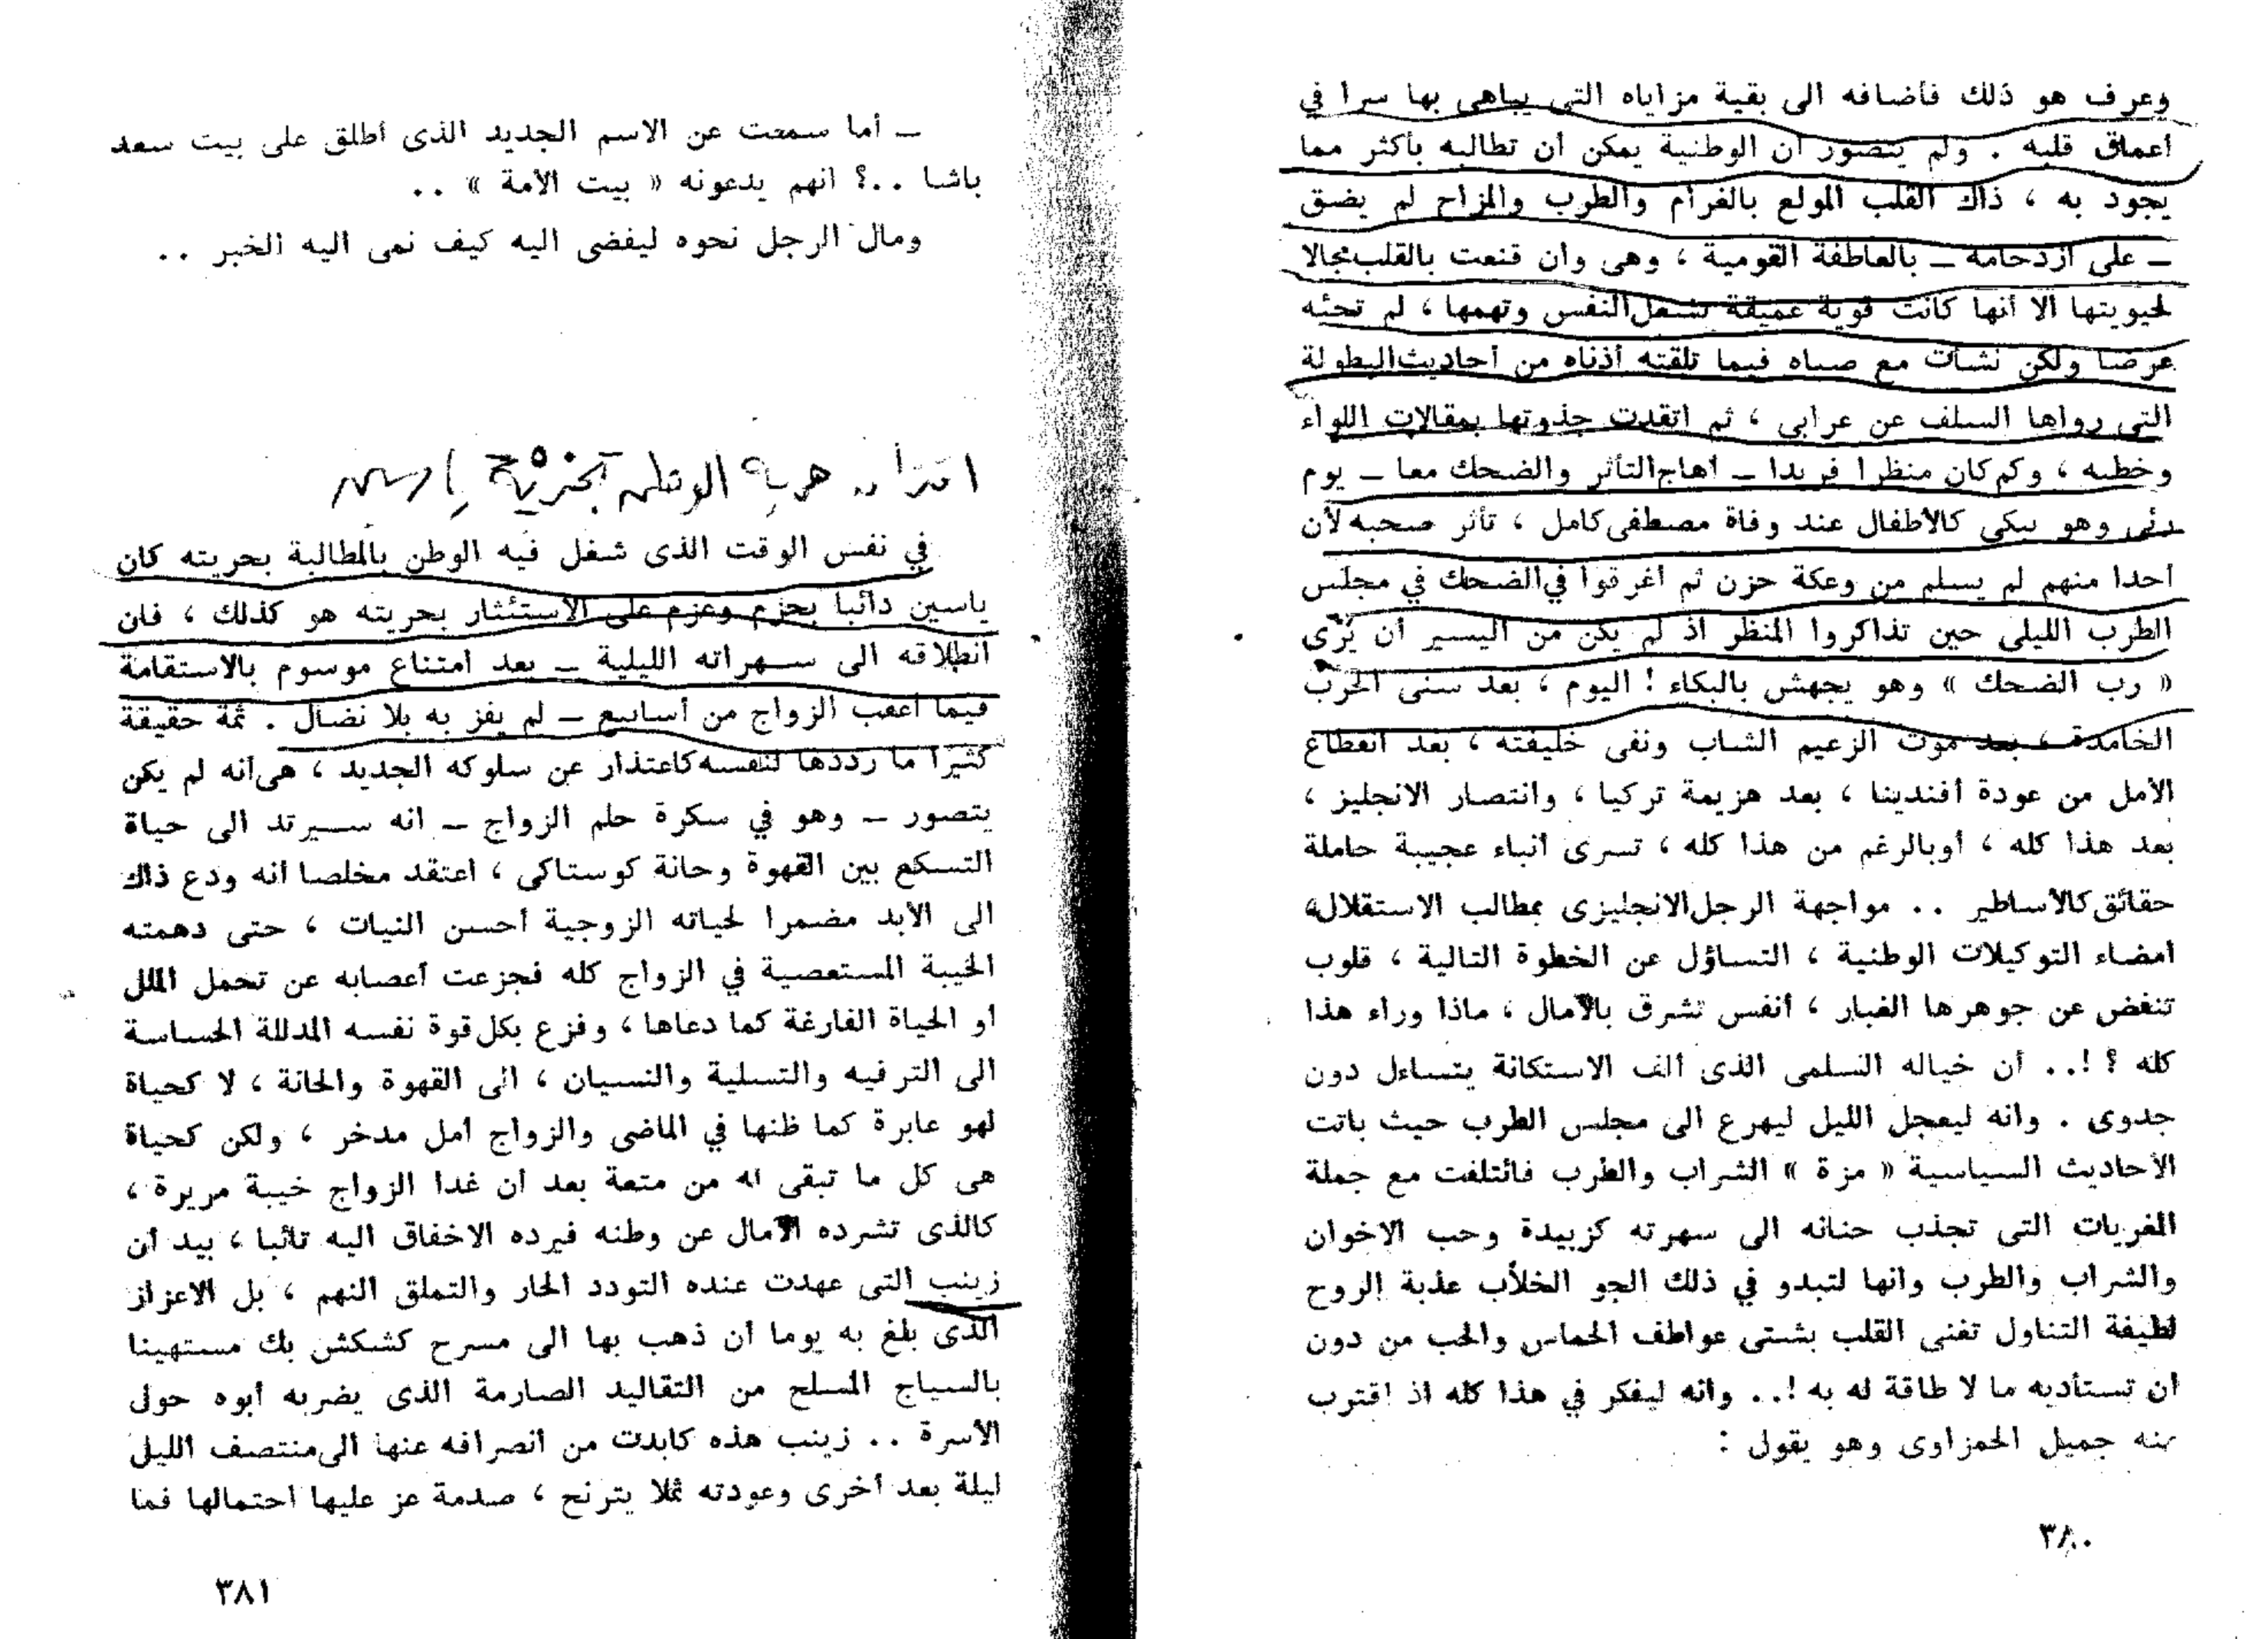 وعرف هو ذلك فأضافه الى بقية مزاياه التى يباهى بها سرا في
أعماق قلبه . ولم يتصور أن الوطنية يمكن أن تطالبه بأكثر مما
يجود به ، ذاك القلب المولع بالغرام والطرب والمزاح لم يضق
ــ على ازدحامه ــ بالعاطفة القومية ، وهى وان قنعت بالقلب مجالا
لحيويتها الا أنها كانت قوية عميقة تشغل النفس وتهمها ، لم تجئه
عرضا ولكن نشأت مع صباه فيما تلقته أذناه من أحاديث البطولة
التى رواها السلف عن عرابى ، ثم اتقدت جذوتها بمقالات اللواء
وخطبه ، وكم كان منظرا فريدا ــ أهاج التأثر والضحك معا ــ يوم
رئى وهو يبكى كالأطفال عند وفاة مصطفى كامل ، تأثر صحبه لأن
أحدا منهم لم يسلم من وعكة حزن ثم أغرقوا في الضحك في مجلس
الطرب الليلى حين تذاكروا المنظر اذ لم يكن من اليسير أن يُرى
« رب الضحك » وهو يجهش بالبكاء ! اليوم ، بعد سنى الحرب
الخامدة ، بعد موت الزعيم الشاب ونفى خليفته ، بعد انقطاع
الأمل من عودة أفندينا ، بعد هزيمة تركيا ، وانتصار الانجليز ،
بعد هذا كله ، أو بالرغم من هذا كله ، تسرى أنباء عجيبة حاملة
حقائق كالأساطير .. مواجهة الرجل الانجليزى بمطالب الاستقلال،
امضاء التوكيلات الوطنية ، التساؤل عن الخطوة التالية ، قلوب
تنفض عن جوهرها الغبار ، أنفس تشرق بالآمال ، ماذا وراء هذا
كله ؟ !.. أن خياله السلمى الذى ألف الاستكانة يتساءل دون
جدوى . وانه ليعجل الليل ليهرع الى مجلس الطرب حيث باتت
الأحاديث السياسية « مزة » الشراب والطرب فائتلفت مع جملة
المغريات التى تجذب حنانه الى سهرته كزبيدة وحب الاخوان
والشراب والطرب وانها لتبدو في ذلك الجو الخلاب عذبة الروح
لطيفة التناول تغنى القلب بشتى عواطف الحماس والحب من دون
أن تستأديه ما لا طاقة له به !.. وانه ليفكر في هذا كله اذ اقترب
منه جميل الحمزاوى وهو يقول :
٣٨٠
ــ أما سمعت عن الاسم الجديد الذى أطلق على بيت سعد
باشا ..؟ انهم يدعونه « بيت الأمة » ..
ومال الرجل نحوه ليفضى اليه كيف نمى اليه الخبر ..
حرية الوطن بحرية ياسين
في نفس الوقت الذى شغل فيه الوطن بالمطالبة بحريته كان
ياسين دائبا بحزم وعزم على الاستئثار بحريته هو كذلك ، فان
انطلاقه الى سهراته الليلية ــ بعد امتناع موسوم بالاستقامة
فيما أعقب الزواج من أسابيع ــ لم يفز به بلا نضال . ثمة حقيقة
كثيرا ما رددها لنفسه كاعتذار عن سلوكه الجديد ، هى أنه لم يكن
يتصور ــ وهو في سكرة حلم الزواج ــ أنه سيرتد الى حياة
التسكع بين القهوة وحانة كوستاكى ، اعتقد مخلصا أنه ودع ذاك
الى الأبد مضمرا لحياته الزوجية أحسن النيات ، حتى دهمته
الخيبة المستعصية في الزواج كله فجزعت أعصابه عن تحمل الملل
أو الحياة الفارغة كما دعاها ، وفزع بكل قوة نفسه المدللة الحساسة
الى الترفيه والتسلية والنسيان ، الى القهوة والحانة ، لا كحياة
لهو عابرة كما ظنها في الماضى والزواج أمل مدخر ، ولكن كحياة
هى كل ما تبقى له من متعة بعد أن غدا الزواج خيبة مريرة ،
كالذى تشرده الآمال عن وطنه فيرده الاخفاق اليه تائبا ، بيد أن
زينب التى عهدت عنده التودد الحار والتملق النهم ، بل الاعزاز
الذى بلغ به يوما أن ذهب بها الى مسرح كشكش بك مستهينا
بالسياج المسلح من التقاليد الصارمة الذى يضربه أبوه حول
الأسرة .. زينب هذه كابدت من انصرافه عنها الى منتصف الليل
ليلة بعد أخرى وعودته ثملا يترنح ، صدمة عز عليها احتمالها فما
٣٨١